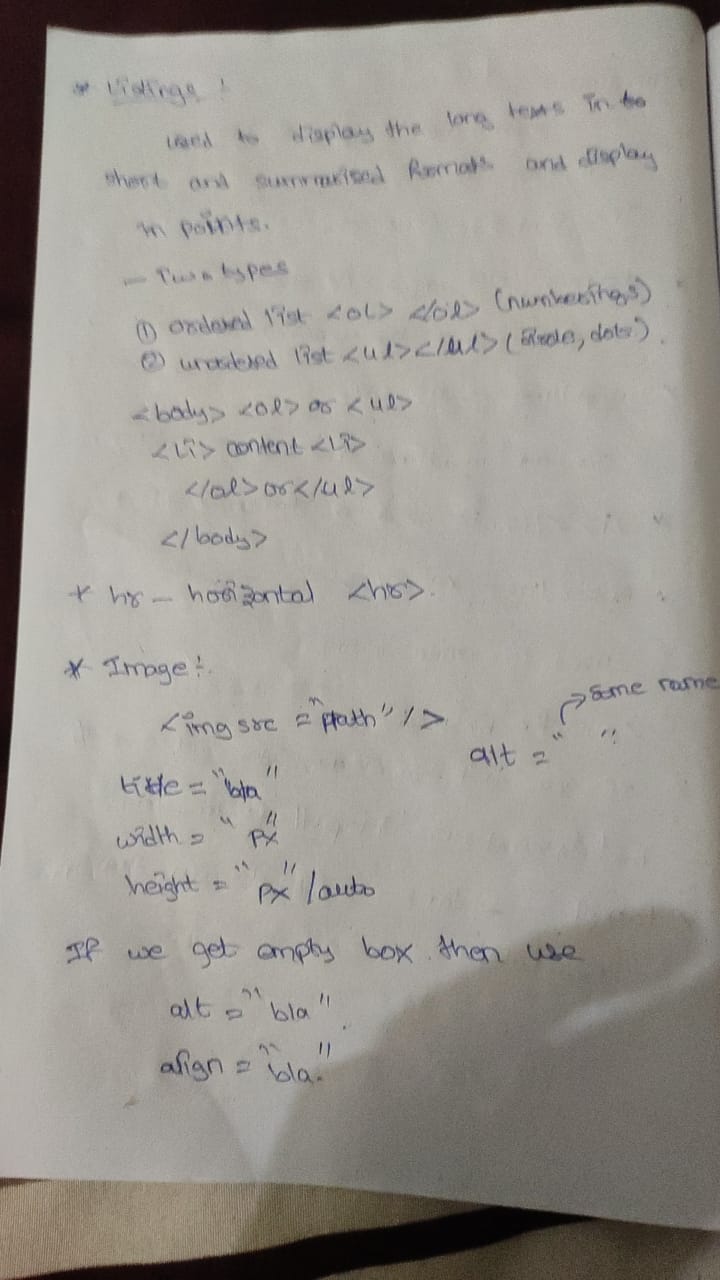 * Listings :
used to display the long texts in to
short and summarised formats and display
in points.
- Two types
① ordered list <ol> </ol> (numberings)
② unordered list <ul></ul> (circle, dots).
<body> <ol> or <ul>
<li> content <li>
</ol> or </ul>
</body>
* hr - horizontal <hr>.
* Image :
<img src = "path" />
→ same name
alt = " "
title = "bla"
width = " px"
height = " px" / auto
If we get empty box then use
alt = "bla".
align = "bla."